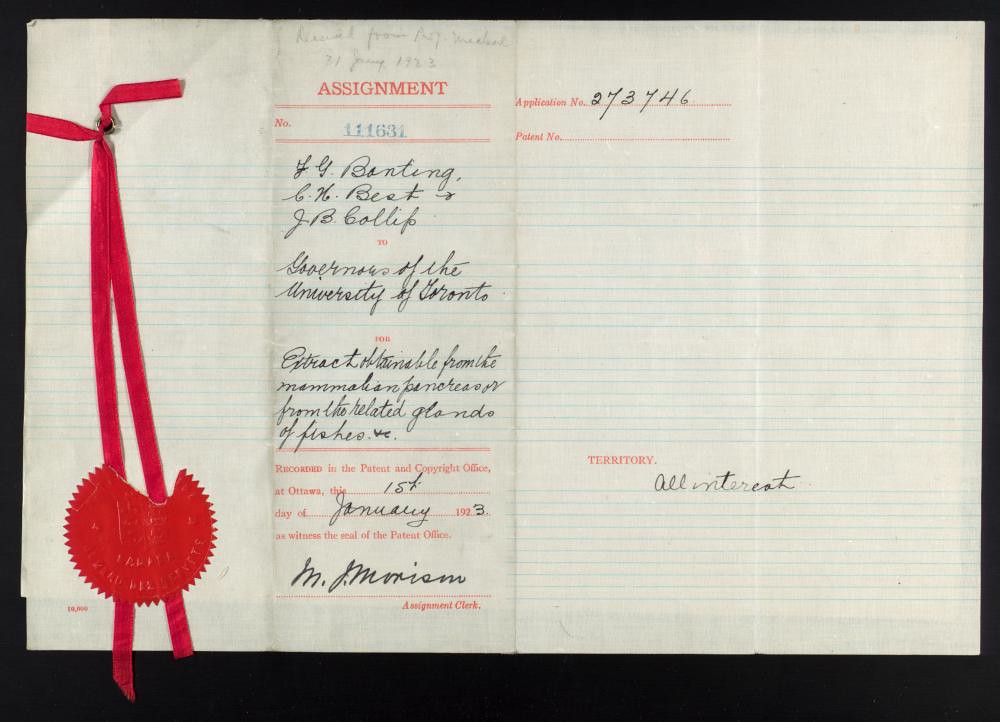 from Prof.
31 Jany 1923
ASSIGNMENT
No. 111631
F G. Banting,
C. H. Best &
J. B. Collip
TO
Governors of the
University of Toronto
FOR
Extract obtainable from the
mammalian pancreas or
from the related glands
of fishes. &c.
RECORDED in the Patent and Copyright Office,
at Ottawa, this 15th
day of January 1923.
as witness the seal of the Patent Office.
M. J. Morison
Assignment Clerk.
10,000
Application No. 273746
Patent No.
TERRITORY.
All interest